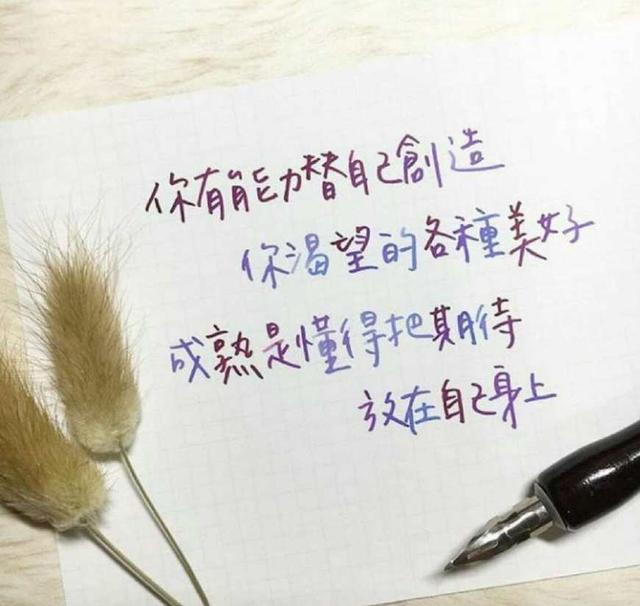 你有能力替自己創造
你渴望的各種美好
成熟是懂得把期待
放在自己身上